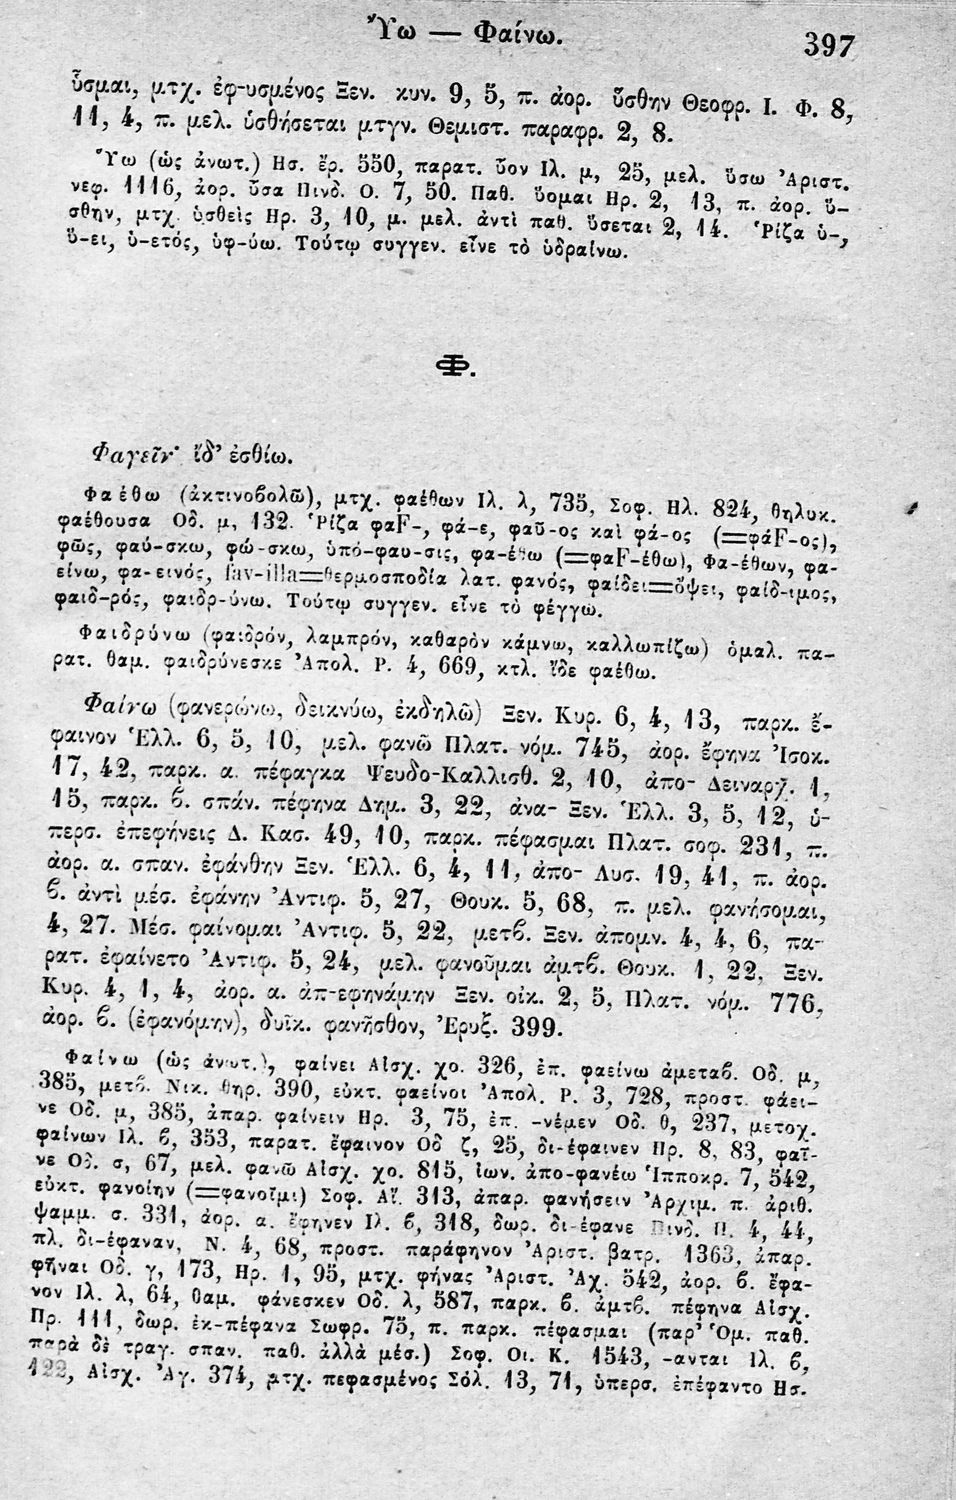 Ὕω — Φαίνω. 397
ὗσμαι, μτχ. ἐφ-υσμένος Ξεν. κυν. 9, 5, π. ἀορ. ὕσθην Θεοφρ. Ι. Φ. 8,
11, 4, π. μελ. ὑσθήσεται μτγν. Θεμιστ. παραφρ. 2, 8.
Ὕω (ὡς ἀνωτ.) Ησ. ἔρ. 550, παρατ. ὗον Ιλ. μ, 25, μελ. ὕσω Ἀριστ.
νεφ. 1116, ἀορ. ὗσα Πινδ. Ο. 7, 50. Παθ. ὕομαι Ηρ. 2, 13, π. ἀορ. ὕ-
σθην, μτχ. ὑσθεὶς Ηρ. 3, 10, μ. μελ. ἀντὶ παθ. ὕσεται 2, 14. Ῥίζα ὑ-,
ὕ-ει, ὑ-ετός, ὑφ-ύω. Τούτῳ συγγεν. εἶνε τὸ ὑδραίνω.
Φ.
Φαγεῖν· ἴδ' ἐσθίω.
Φαέθω (ἀκτινοβολῶ), μτχ. φαέθων Ιλ. λ, 735, Σοφ. Ηλ. 824, θηλυκ.
φαέθουσα Οδ. μ, 132. Ῥίζα φαF-, φά-ε, φαῦ-ος καὶ φά-ος (=φάF-ος),
φῶς, φαύ-σκω, φώ-σκω, ὑπό-φαυ-σις, φα-έθω (=φαF-έθω), Φα-έθων, φα-
είνω, φα-εινός, fav-illa=θερμοσποδία λατ. φανός, φαίδει=ὄψει, φαίδ-ιμος,
φαιδ-ρός, φαιδρ-ύνω. Τούτῳ συγγεν. εἶνε τὸ φέγγω.
Φαιδρύνω (φαιδρόν, λαμπρόν, καθαρὸν κάμνω, καλλωπίζω) ὁμαλ. πα-
ρατ. θαμ. φαιδρύνεσκε Ἀπολ. Ρ. 4, 669, κτλ. ἴδε φαέθω.
Φαίνω (φανερώνω, δεικνύω, ἐκδηλῶ) Ξεν. Κυρ. 6, 4, 13, παρκ. ἔ-
φαινον Ἑλλ. 6, 5, 10, μελ. φανῶ Πλατ. νόμ. 745, ἀορ. ἔφηνα Ἰσοκ.
17, 42, παρκ. α. πέφαγκα Ψευδο-Καλλισθ. 2, 10, ἀπο- Δειναρχ. 1,
15, παρκ. β. σπάν. πέφηνα Δημ. 3, 22, ἀνα- Ξεν. Ἑλλ. 3, 5, 12, ὑ-
περσ. ἐπεφήνεις Δ. Κασ. 49, 10, παρκ. πέφασμαι Πλατ. σοφ. 231, π.
ἀορ. α. σπαν. ἐφάνθην Ξεν. Ἑλλ. 6, 4, 11, ἀπο- Λυσ. 19, 41, π. ἀορ.
β. ἀντὶ μέσ. ἐφάνην Ἀντιφ. 5, 27, Θουκ. 5, 68, π. μελ. φανήσομαι,
4, 27. Μέσ. φαίνομαι Ἀντιφ. 5, 22, μετβ. Ξεν. ἀπομν. 4, 4, 6, πα-
ρατ. ἐφαίνετο Ἀντιφ. 5, 24, μελ. φανοῦμαι ἀμτβ. Θουκ. 1, 22, Ξεν.
Κυρ. 4, 1, 4, ἀορ. α. ἀπ-εφηνάμην Ξεν. οἰκ. 2, 5, Πλατ. νόμ. 776,
ἀορ. β. (ἐφανόμην), δυϊκ. φανῆσθον, Ἐρυξ. 399.
Φαίνω (ὡς ἀνωτ.), φαίνει Αἰσχ. χο. 326, ἐπ. φαείνω ἀμεταβ. Οδ. μ,
385, μετβ. Νικ. θηρ. 390, εὐκτ. φαείνοι Ἀπολ. Ρ. 3, 728, προστ. φάει-
νε Οδ. μ, 385, ἀπαρ. φαίνειν Ηρ. 3, 75, ἐπ. -νέμεν Οδ. θ, 237, μετοχ.
φαίνων Ιλ. β, 353, παρατ. ἔφαινον Οδ ζ, 25, δι-έφαινεν Ηρ. 8, 83, φαῖ-
νε Οδ. σ, 67, μελ. φανῶ Αἰσχ. χο. 815, ἰων. ἀπο-φανέω Ἱπποκρ. 7, 542,
εὐκτ. φανοίην (=φανοῖμι) Σοφ. Αἴ. 313, ἀπαρ. φανήσειν Ἀρχιμ. π. ἀριθ.
ψαμμ. σ. 331, ἀορ. α. ἔφηνεν Ιλ. β, 318, δωρ. δι-έφανε Πινδ. Π. 4, 44,
πλ. δι-έφαναν, Ν. 4, 68, προστ. παράφηνον Ἀριστ. βατρ. 1363, ἀπαρ.
φῆναι Οδ. γ, 173, Ηρ. 1, 95, μτχ. φήνας Ἀριστ. Ἀχ. 542, ἀορ. β. ἔφα-
νον Ιλ. λ, 64, θαμ. φάνεσκεν Οδ. λ, 587, παρκ. β. ἀμτβ. πέφηνα Αἰσχ.
Πρ. 111, δωρ. ἐκ-πέφανα Σωφρ. 75, π. παρκ. πέφασμαι (παρ' Ὁμ. παθ.
παρὰ δὲ τραγ. σπαν. παθ. ἀλλὰ μέσ.) Σοφ. Οι. Κ. 1543, -ανται Ιλ. β,
122, Αἰσχ. Ἀγ. 374, μτχ. πεφασμένος Σόλ. 13, 71, ὑπερσ. ἐπέφαντο Ησ.